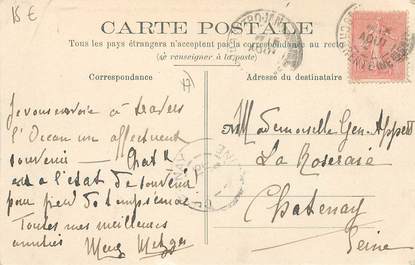 15 €
CARTE POSTALE
Tous les pays étrangers n'acceptent pas la correspondance au recto
(se renseigner à la poste)
Correspondance
Adresse du destinataire
Je vous envoie à travers
l'Ocean un affectueux
souvenir — Chat
est à l'état de souvenir
pour peu de temps encore
Toutes mes meilleures
amitiés
Mademoiselle Gen. Appert
La Roseraie
Chatenay
Seine